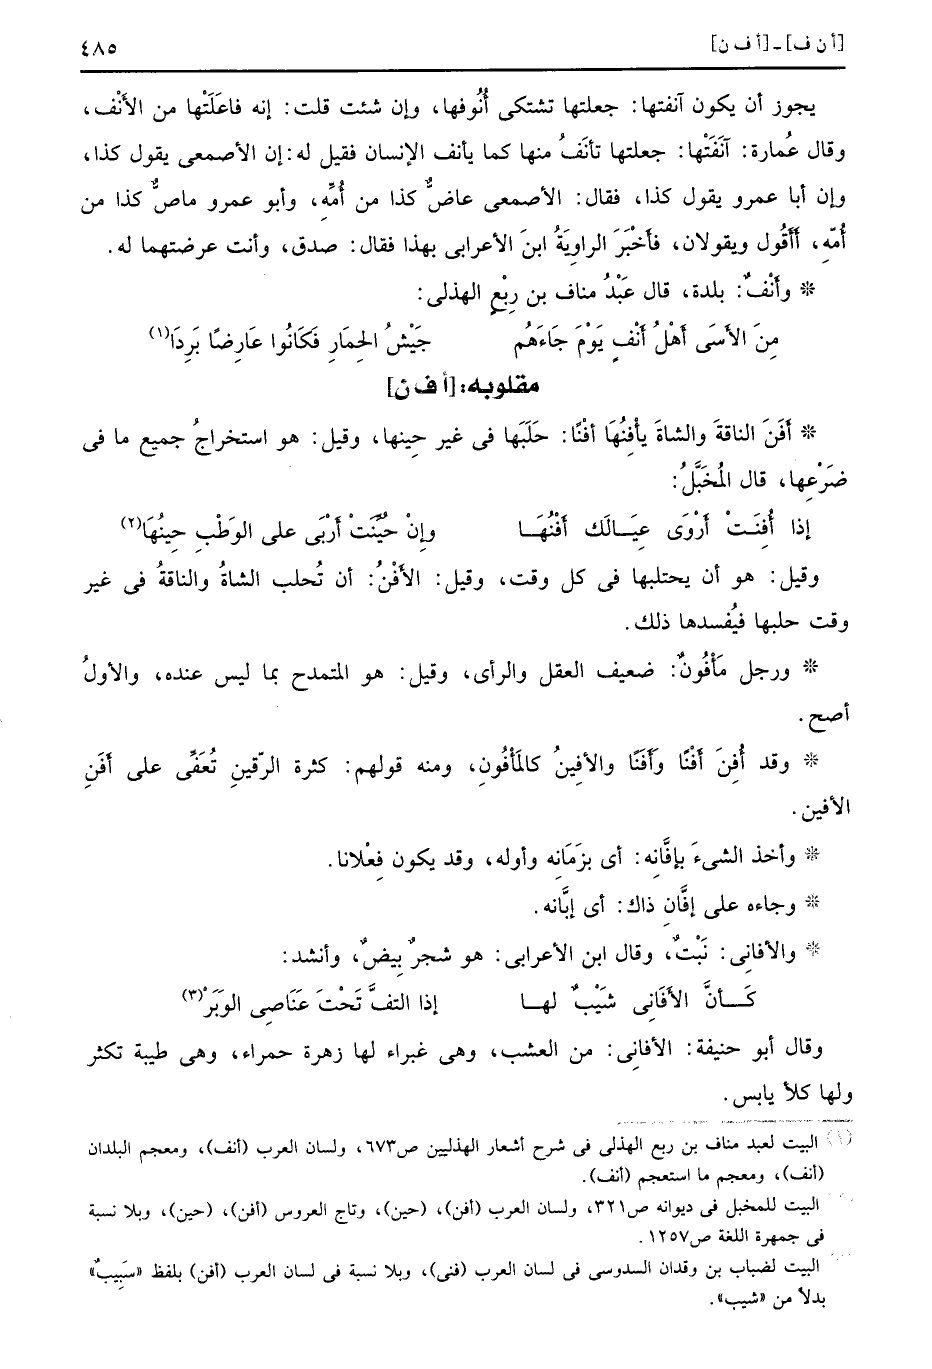 [أ ن ف] ـ [أ ف ن] ٤٨٥
يجوز أن يكون آنفتها: جعلتها تشتكى أُنُوفها، وإن شئت قلت: إنه فاعَلَتْها من الأَنْف،
وقال عُمارة: آنَفَتْها: جعلتها تأنَفُ منها كما يأنف الإنسان فقيل له: إن الأصمعى يقول كذا،
وإن أبا عمرو يقول كذا، فقال: الأصمعى عاضٌّ كذا من أُمِّه، وأبو عمرو ماصٌّ كذا من
أُمّه، أَأَقُول ويقولان، فأَخْبَرَ الراوِيَةُ ابنَ الأعرابى بهذا فقال: صدق، وأنت عرضتهما له.
* وأَنْفٌ: بلدة، قال عَبْدُ مناف بن رِبْعٍ الهذلى:
مِنَ الأَسَى أَهْلُ أَنْفٍ يَوْمَ جَاءَهُم جَيْشُ الحِمَارِ فكَانُوا عَارِضًا بَرِدَا(١)
مقلوبه: [أ ف ن]
* أَفَنَ الناقةَ والشاةَ يأفِنُهَا أفْنًا: حَلَبَها فى غير حِينِها، وقيل: هو استخراجُ جميع ما فى
ضَرْعِها، قال المُخَبَّلُ:
إذا أُفِنَتْ أَرْوَى عِيَالَك أَفْنُهَا وإنْ حُيِّنَتْ أَرْبَى على الوَطْبِ حِينُهَا(٢)
وقيل: هو أن يحتلبها فى كل وقت، وقيل: الأَفْنُ: أن تُحلب الشاةُ والناقةُ فى غير
وقت حلبها فيُفسدها ذلك.
* ورجل مَأْفُونٌ: ضعيف العقل والرأى، وقيل: هو المتمدح بما ليس عنده، والأولُ
أصح.
* وقد أُفِنَ أَفْنًا وأَفَنًا والأفِينُ كالمَأْفُونِ، ومنه قولهم: كثرة الرّقين تُعَفِّى على أَفَنِ
الأفين.
* وأخذ الشىءَ بإفَّانِه: أى بزَمَانِه وأوله، وقد يكون فِعْلانا.
* وجاءه على إفَّانِ ذاك: أى إبَّانه.
* والأفانِى: نَبْتٌ، وقال ابن الأعرابى: هو شجرٌ بِيضٌ، وأنشد:
كَــأنَّ الأفَانِى شَيْبٌ لهـا إذا التفَّ تَحْتَ عَنَاصِى الوَبَرْ(٣)
وقال أبو حنيفة: الأفانِى: من العشب، وهى غبراء لها زهرة حمراء، وهى طيبة تكثر
ولها كلأ يابس.
(١) البيت لعبد مناف بن ربع الهذلى فى شرح أشعار الهذليين ص٦٧٣، ولسان العرب (أنف)، ومعجم البلدان
(أنف)، ومعجم ما استعجم (أنف).
البيت للمخبل فى ديوانه ص٣٢١، ولسان العرب (أفن)، (حين)، وتاج العروس (أفن)، (حين)، وبلا نسبة
فى جمهرة اللغة ص١٢٥٧.
البيت لضباب بن وقدان السدوسى فى لسان العرب (فنى)، وبلا نسبة فى لسان العرب (أفن) بلفظ «سَبِيبٌ»
بدلاً من «شيب».